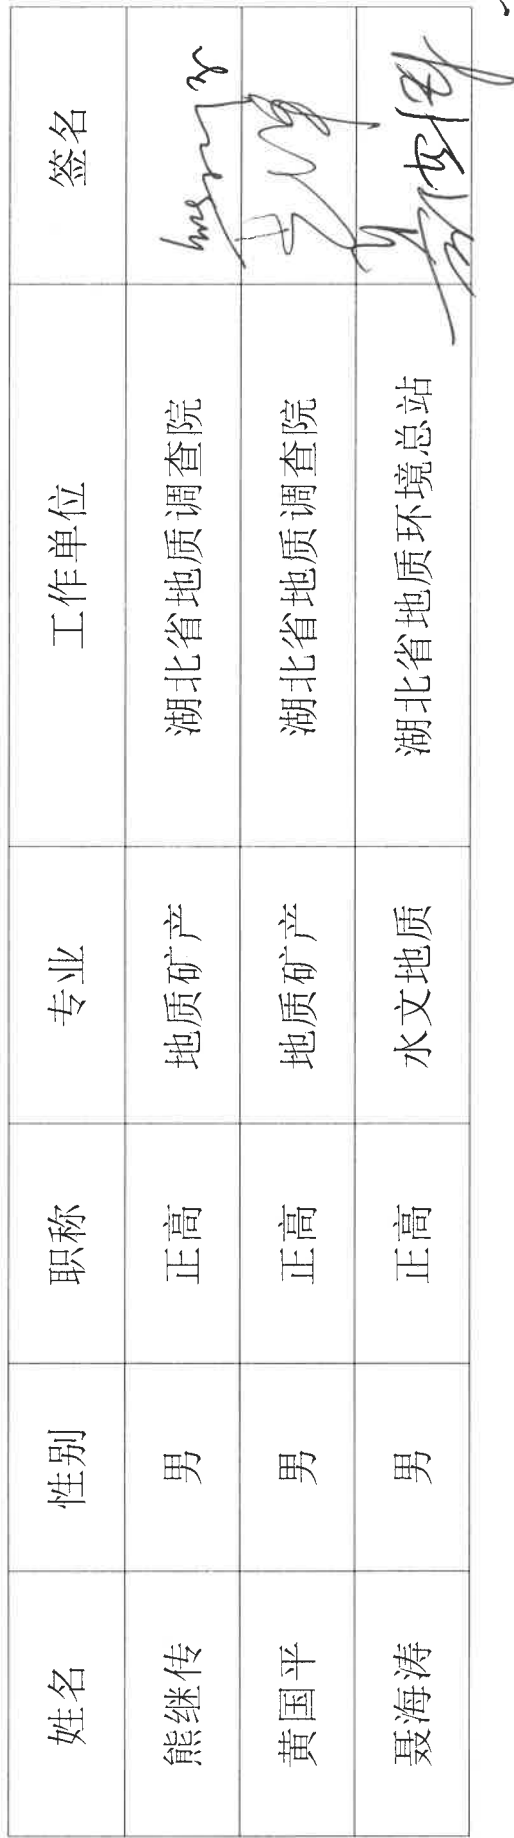 姓名 性别 职称 专业 工作单位 签名
熊继传 男 正高 地质矿产 湖北省地质调查院
黄国平 男 正高 地质矿产 湖北省地质调查院
聂海涛 男 正高 水文地质 湖北省地质环境总站